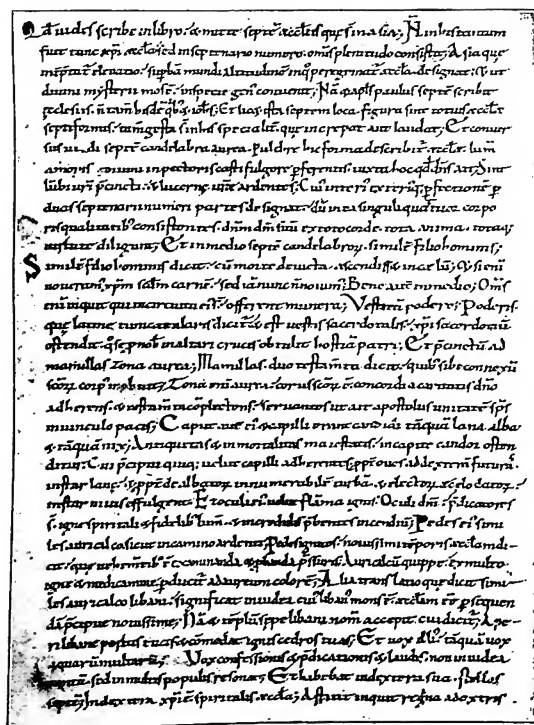 Qđ uides scribe in libro & mitte septē ecclesiis que sī in asia; Nā in his tantum
fuit tunc xp̄i ecclesia sed in septenario numero omis plenitudo consistit; Asia que
interptat̄ eleuatio supbā mundi altitudinē in q̣ peregrinat̄ eccła designat &
diuini mysterii mose in specie genꝰ conuenit; Nā & apłs paulus septē scribit
ecclesiis ñ tam̄ hisdē qb; & iohs; Et licet ista septem loca figura sint totius eccłe
septiformis tam̄ gesta sī in his specialit̄ que increpat aut laudat; Et conuer
sus uidi septē candelabra aurea; Pulchre hic forma describit̄ eccłe lum̄
amoris diuini in pectoris casti fulgore pferentis iuxta hoc qđ dn̄s ait Sint
lūbi ur̄i p̄cincti & lucerne ur̄e ardentes; Cui interi exteriq; pfectionē p
duas septenarii numeri partes designat dū in ea singuli quattuor corpo
ris qualitatib; consistentes dn̄m dm̄ suū ex toto corde tota anima totaq;
uirtute diligunt; Et in medio septē candelabroꝝ similē filio hominis;
Similē filio hominis dicit cū morte deuicta ascendisset in celū; & si enī
nouerimus xp̄m scđm carnē sed iā nunc ñ nouim; Bene aut̄ in medio; Om̄s
enī inquit qui in circuitu ei sī offerent munera; Vestitū podere; Poderis
que latine tunica talaris dicit̄ & est uestis sacerdotalis xp̄i sacerdotiū
ostendit q̣ se p nob in altari crucis obtulit hostiā patri; Et p̄cinctū ad
mamillas zona aurea; Mamillas duo testam̄ta dicit quib; sibi connexū
scōꝝ corp̄ imbuit; Zona eni aurea chorus scōꝝ ē concordia caritatis dn̄o
adherens & testam̄ta cōplectens seruantes ut ait apostolus unitatē sp̄s
in uinculo pacis; Caput aut̄ ei & capilli erant candidi tāquā lana alba
& tāquā nix; Antiquitas & inmortalitas maiestatis in capite candor osten
ditur; Cui p̄cipui quiq; uelut capilli adherentes ppt̄ oues ad dexterā futurā
instar lane & ppt̄ dealbatoꝝ innumerabilē turbā & electoꝝ e celo datoꝝ
instar niuis effulgent; Et oculi ei uelut flāma ignis; Oculi dn̄i p̄dicatores
s̄ igne spiritali & fidelib; lum̄ & incredulis p̄bentes incendiū; Pedes ei simi
les auricalco sicut in camino ardenti; Pedes ignitos nouissimi temporis eccłam di
cit que uehem̄tib; ē examinanda & p̄banda p̄ssuris; Auricalcū quippe ex multo
igne & medicamine pducit̄ ad aureum colorē; Alia translatio que dicit simi
les auricalco libani significat in iudea cui libanꝰ mons ē eccłam eē psequen
dā p̄cipue nouissime; Nā & tēplū sepe libani nom̄ accepit cui dicit̄; Ape
ri libane portas tuas & comedat ignis cedros tuas; Et uox illi tāquā uox
aquarū multarū; Vox confessionis & p̄dicationis & laudis non in iudea
tantū sed in multis populis resonat; Et habebat in dextera sua stellas
septē; In dextera xp̄i ē spiritalis eccła; Astitit inquit regina a dextris